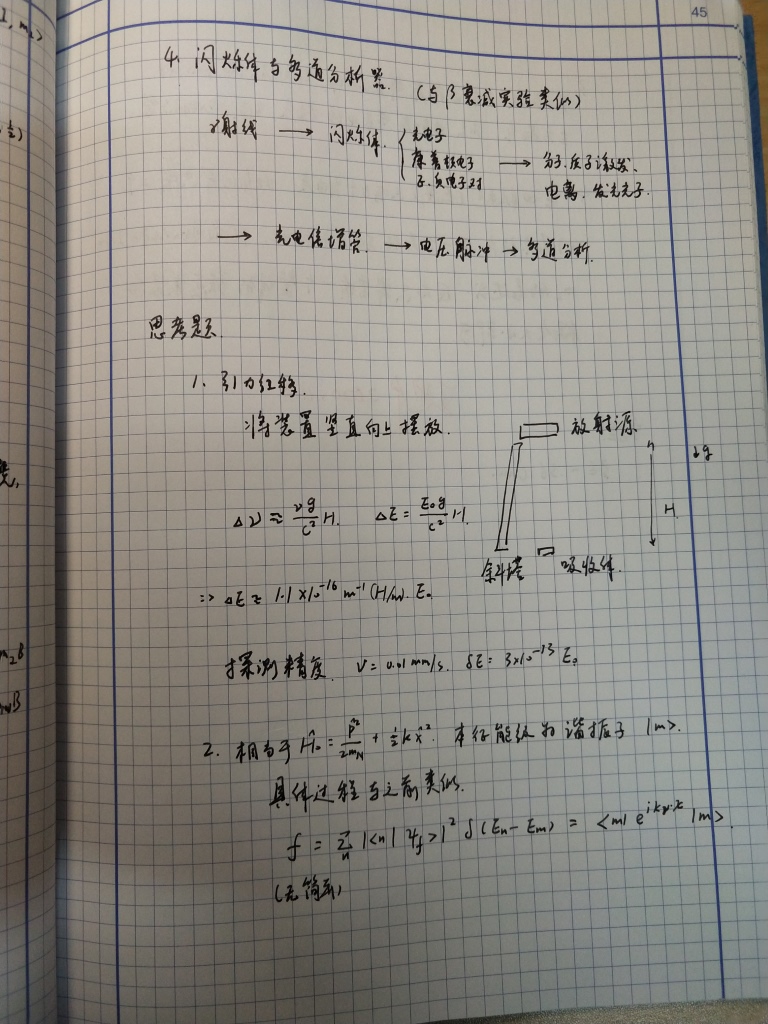 45
4. 闪烁体与多道分析器. (与β衰减实验类似)
γ射线 → 闪烁体 { 光电子
康普顿电子
正.负电子对
→ 分子.原子激发、
电离. 发光光子.
→ 光电倍增管 → 电压脉冲 → 多道分析.
思考题.
1. 引力红移.
将装置竖直向上摆放.
放射源
↓g
Δν ≈ νg/c² H. ΔE = E₀g/c² H.
H
斜塔 吸收体.
=> ΔE ≈ 1.1×10⁻¹⁶ m⁻¹ (H/m). E₀
探测精度. V = 0.01 mm/s. δE = 3×10⁻¹³ E₀
2. 相当于 Ĥ₀ = p̂²/2m_N + ½kx̂². 本征能级为谐振子 |m>.
具体过程与之前类似.
f = Σₙ |<n|ψ_f>|² δ(Eₙ-Eₘ) = <m| e^{ik·x} |m>.